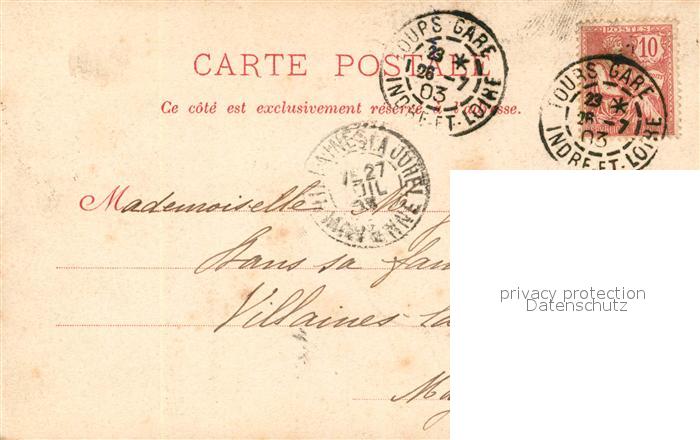 CARTE POSTALE
Ce côté est exclusivement réservé à l'adresse.
TOURS GARE
23 *
26 - 7
03
INDRE-ET-LOIRE
10
TOURS GARE
23 *
26 - 7
03
INDRE-ET-LOIRE
LA JUHEL
27
JUIL
03
MAYENNE
Mademoiselle
Dans sa fam
Villaines la
Ma
privacy protection
Datenschutz